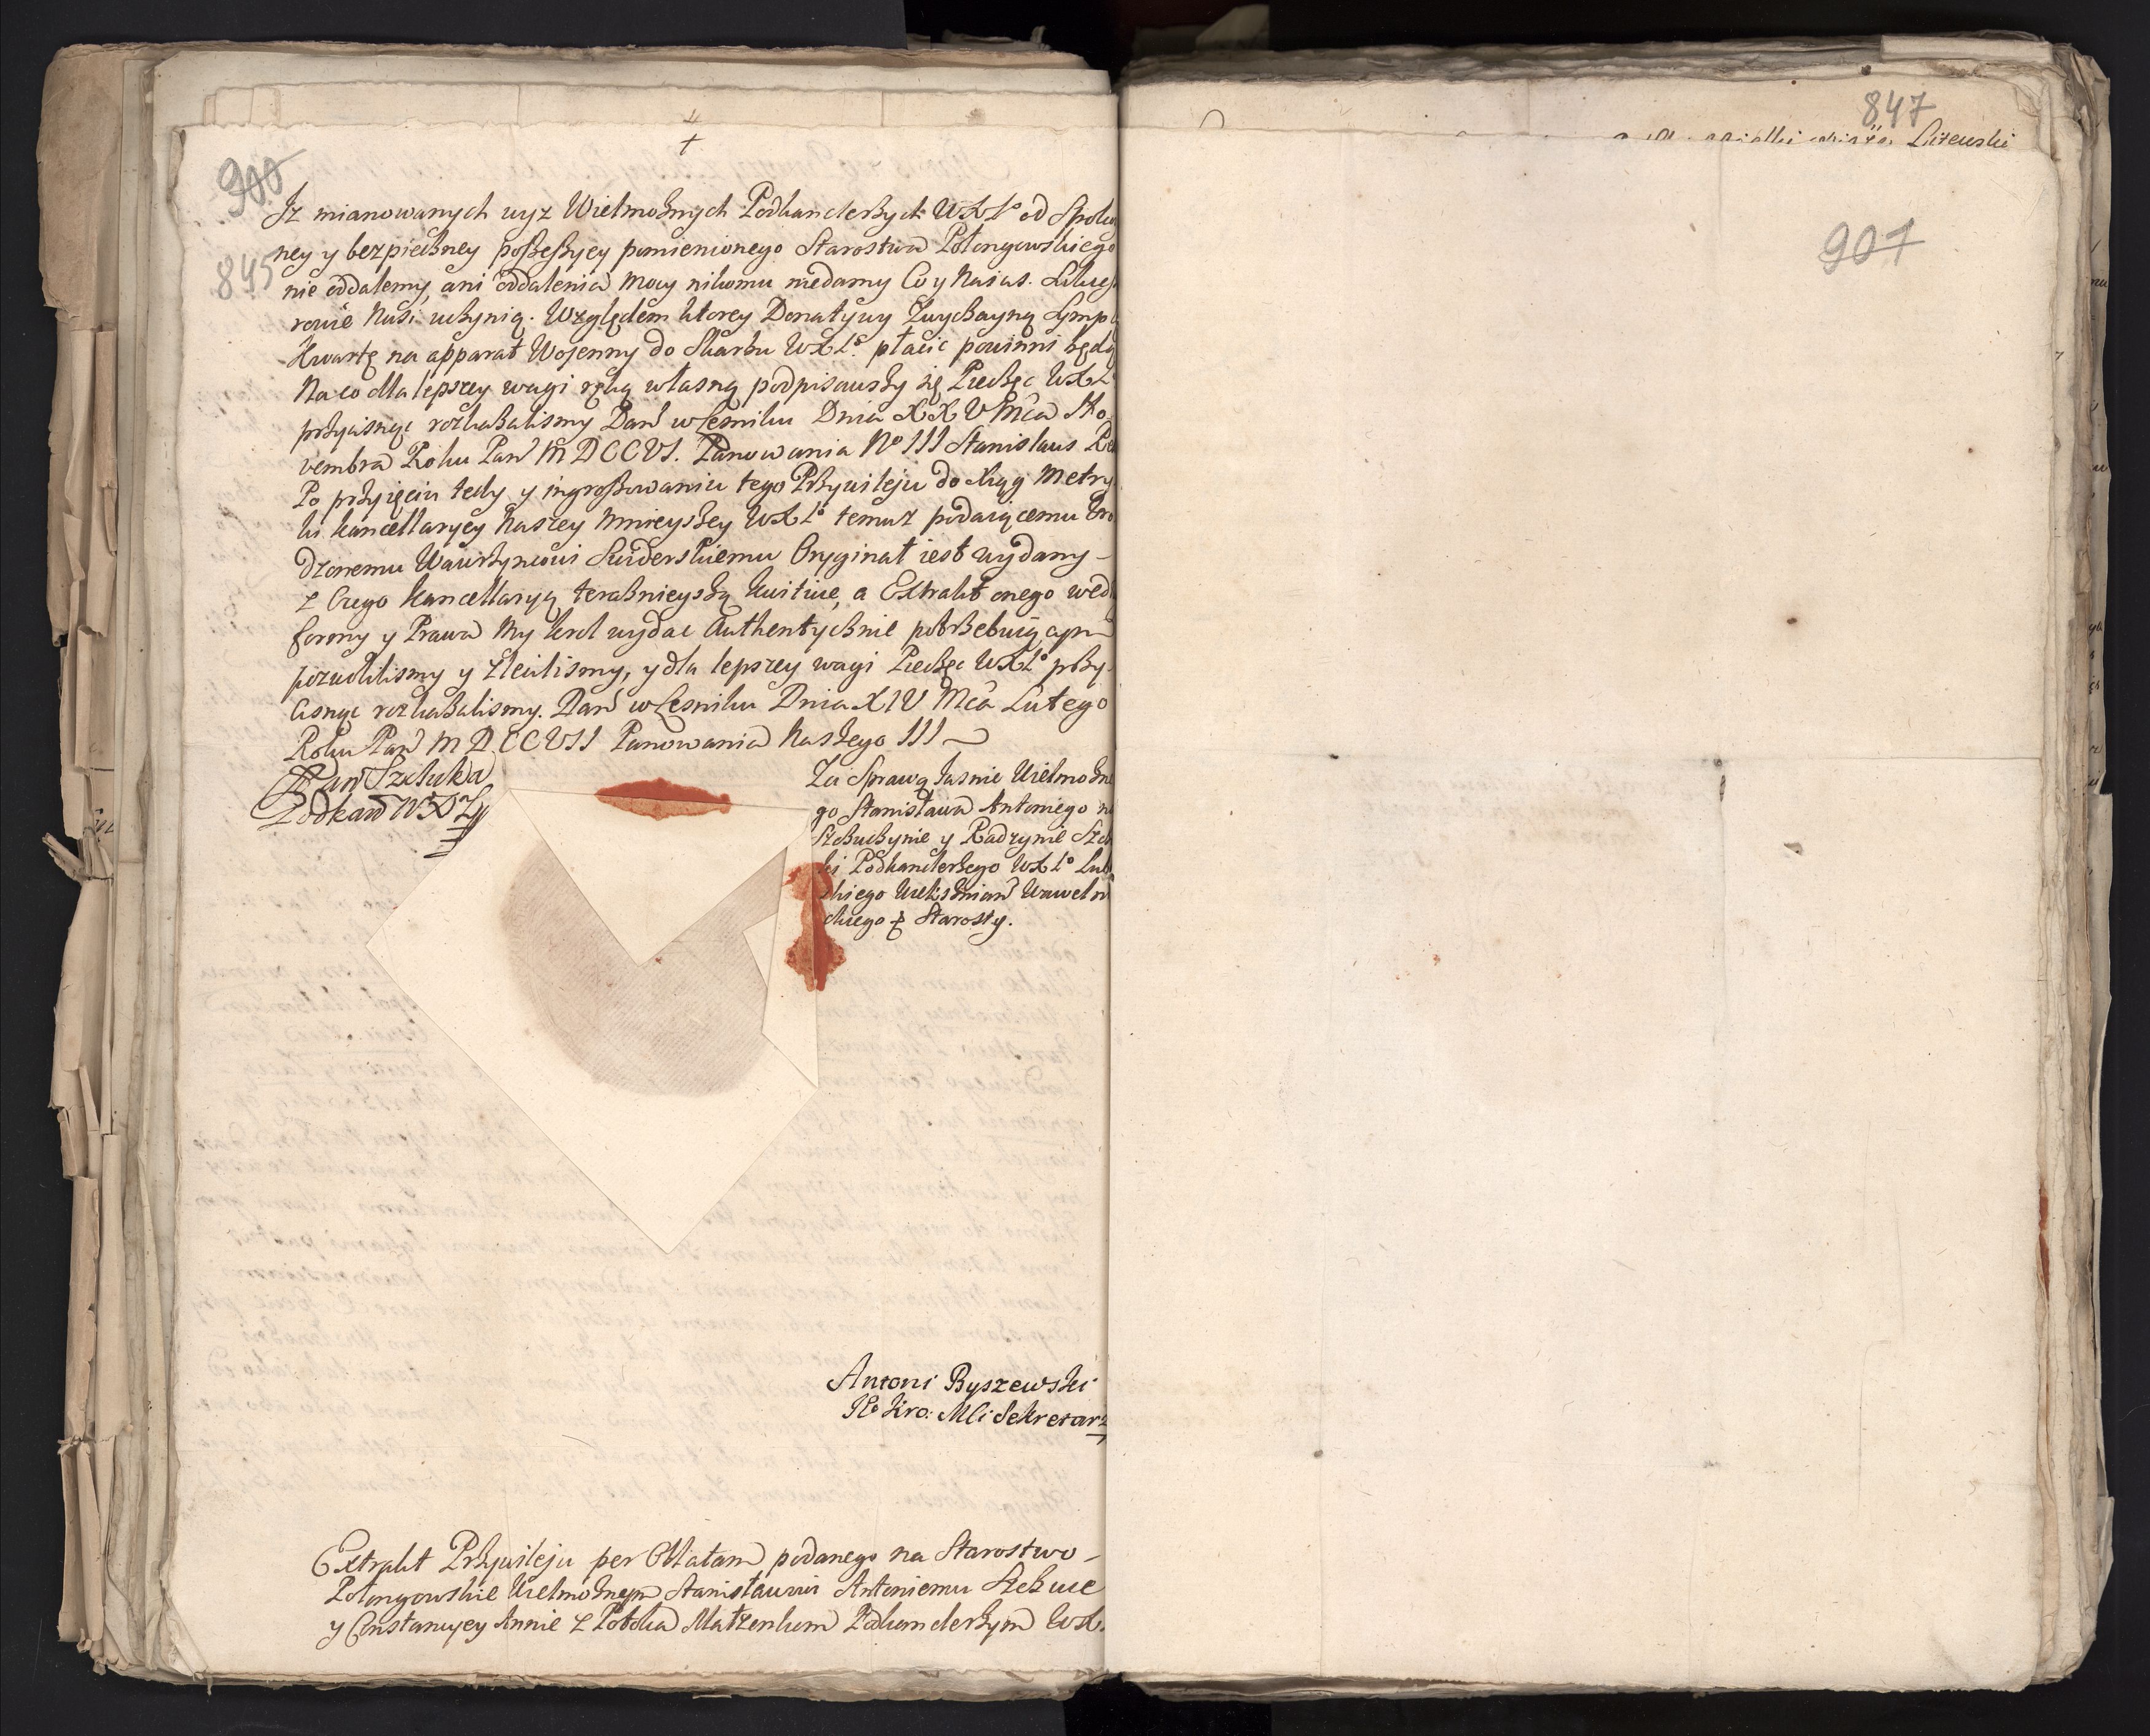 900
845
Iż mianowanych wyż Wielmożnych Podkanclerzych WXLo od Spokoy
ney y bezpieczney possessyey pomienionego Starostwa Połongowskiego
nie oddalemy, ani oddalenia mocy nikomu niedamy Co y Naias. Sukces
rowie Nasi uczynią. Względem ktorey Donatywy Zwyczayną Symp
Kwartę na apparat Woienny do Skarbu WXLo płacić powinni będą
Na co dla lepszey wagi ręką własną podpisawszy się Pieczęć WXL
przycisnąć rozkazalismy Dan w Lesniku Dnia XXV Mca No
vembra Roku Pan MDCCVI. Panowania No III Stanislaus Re
Po przyięciu tedy y ingrossowaniu tego Przywileju do Xiąg Metry
ki kancellaryey Naszey Mnieyszey WXLo temuż podaiącemu Uro
dzonemu Wawrzyncowi Swiderskiemu Oryginał iest wydany
z Czego kancellaryą teraznieyszą kwituie, a Extrakt onego wed
formy y Prawa My krol wydać Authentycznie potrzebuiącym
pozwolilismy y Zlecilismy, y dla lepszey wagi Pieczęć WXLo przy
cisnąć rozkazalismy. Dan w Lesniku Dnia XIV Mca Lutego
Roku Pan MDCCVII Panowania Naszego III
Jan Szczuka
Podkan WXLy
Za Sprawą Jasnie Wielmożne
go Stanisława Antoniego na
Szczuczynie y Radzynie Szczu
ki Podkanclerzego WXLo Lub
skiego Wawelni
ckiego Starosty.
Antoni Byszewski
JKo Kro: Mci Sekretarz
Extrakt Przywileju per Oblatam podanego na Starostwo
Połongowskie Wielmożnym Stanisławowi Antoniemu Szczuce
y Constancyey Annie z Potoka Małżonkom Podkanclerzym WX
847
Liżewski
907